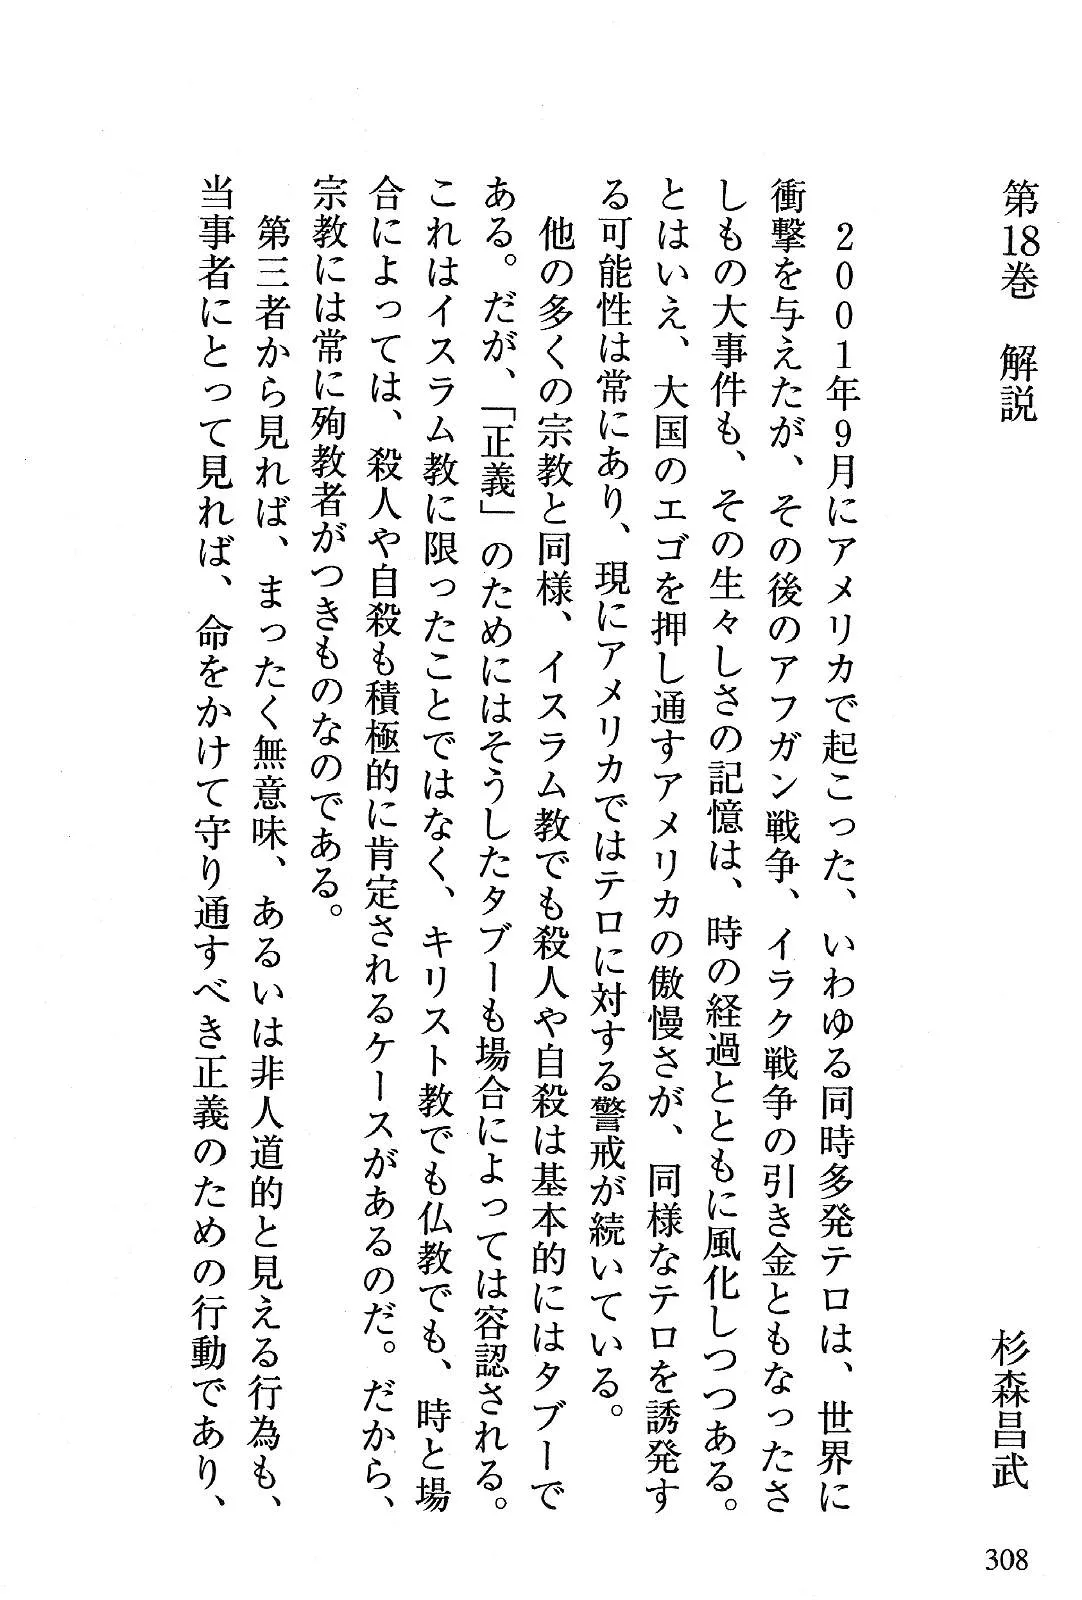 第18巻　解説
杉森昌武
２００１年９月にアメリカで起こった、いわゆる同時多発テロは、世界に
衝撃を与えたが、その後のアフガン戦争、イラク戦争の引き金ともなったさ
しもの大事件も、その生々しさの記憶は、時の経過とともに風化しつつある。
とはいえ、大国のエゴを押し通すアメリカの傲慢さが、同様なテロを誘発す
る可能性は常にあり、現にアメリカではテロに対する警戒が続いている。
他の多くの宗教と同様、イスラム教でも殺人や自殺は基本的にはタブーで
ある。だが、「正義」のためにはそうしたタブーも場合によっては容認される。
これはイスラム教に限ったことではなく、キリスト教でも仏教でも、時と場
合によっては、殺人や自殺も積極的に肯定されるケースがあるのだ。だから、
宗教には常に殉教者がつきものなのである。
第三者から見れば、まったく無意味、あるいは非人道的と見える行為も、
当事者にとって見れば、命をかけて守り通すべき正義のための行動であり、
308